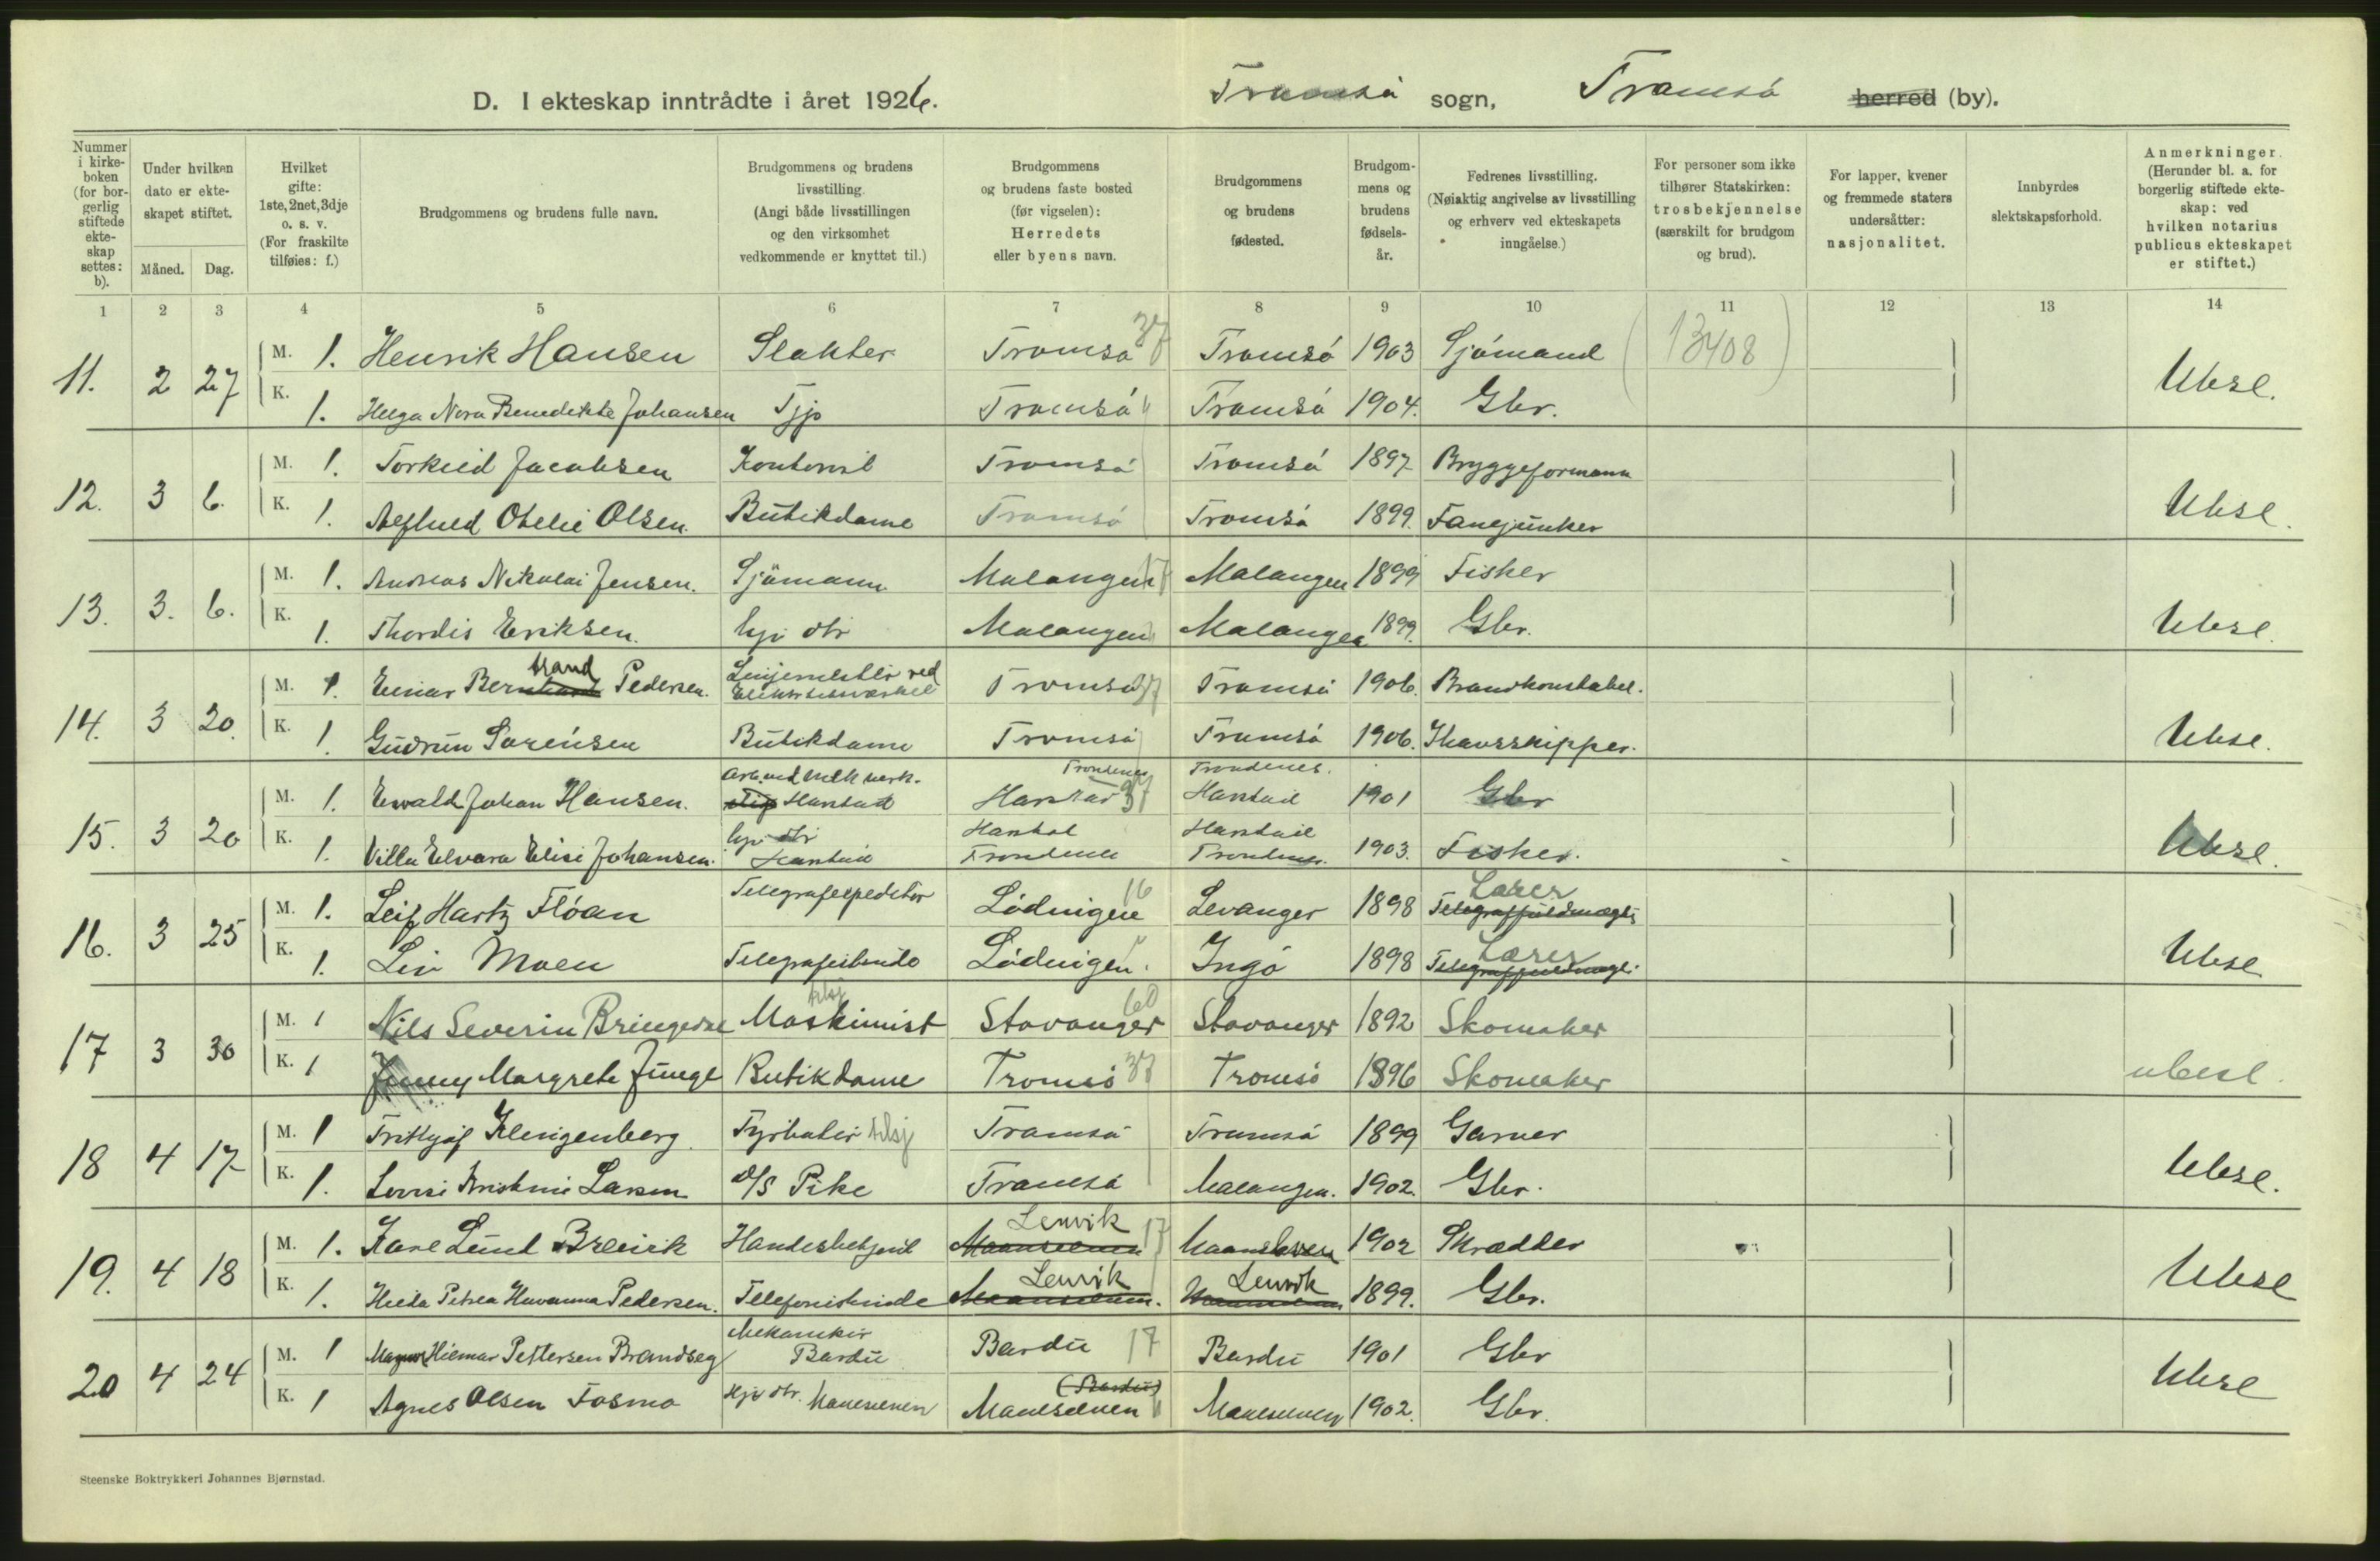 D. I ekteskap inntrådte i året 1926. Tromsö sogn, Tromsö herred (by).
Nummer i kirke-boken (for bor-gerlig stiftede ekte-skap settes: b).
Under hvilken dato er ekte-skapet stiftet.
Måned. Dag.
Hvilket gifte: 1ste, 2net, 3dje o. s. v. (For fraskilte tilføies: f.)
Brudgommens og brudens fulle navn.
Brudgommens og brudens livsstilling. (Angi både livsstillingen og den virksomhet vedkommende er knyttet til.)
Brudgommens og brudens faste bosted (før vigselen): Herredets eller byens navn.
Brudgommens og brudens fødested.
Brudgom-mens og brudens fødsels-år.
Fedrenes livsstilling. (Nøiaktig angivelse av livsstilling og erhverv ved ekteskapets inngåelse.)
For personer som ikke tilhører Statskirken: trosbekjennelse (særskilt for brudgom og brud).
For lapper, kvener og fremmede staters undersåtter: nasjonalitet.
Innbyrdes slektskapsforhold.
Anmerkninger. (Herunder bl. a. for borgerlig stiftede ekte-skap: ved hvilken notarius publicus ekteskapet er stiftet.)
1 2 3 4 5 6 7 8 9 10 11 12 13 14
11. 2 27 M. 1. Henrik Hansen Slakter Tromsö 37 Tromsö 1903 Sjömand (13408)
K. 1. Helga Nora Benedikte Johansen Tjp Tromsö " Tromsö 1904. Gbr. Ubesl.
12. 3 6. M. 1. Torkild Jacobsen Kontorist Tromsö Tromsö 1897 Bryggeformann
K. 1. Alfhild Otelie Olsen. Butikdame Tromsö Tromsö 1899. Fanejunker Ubesl.
13. 3. 6. M. 1. Andreas Nikolai Jensen. Sjömann Malangen 17 Malangen 1899 Fisker
K. 1. Thordis Eriksen. hjv dtr Malangen Malangen 1899. Gbr. Ubesl.
14. 3 20. M. 1. Einar Bernhard trand Pedersen. Linjemester ved Elektrisitsverket Tromsö 37 Tromsö 1906. Brandkonstabel.
K. 1. Gudrun Sørensen Butikdame Tromsö Tromsö 1906. Ishavsskipper. Ubesl.
15. 3 20 M. 1. Ewald Johan Hansen. Harstad Trondenes Harstad 37 Trondenes. Harstad 1901 Gbr
K. 1. Villa Elvara Elise Johansen. hjv dtr Harstad Harstad Trondenes Harstad Trondenes. 1903. Fisker. Ubesl.
16. 3 25 M. 1. Leif Hartz Flöan Telegrafexpeditör Lödingen 16 Levanger 1898 Lærer Telegraffuldmægt.
K. 1. Liv Moen Telegrafistinde Lödingen. " Ingö 1898 Lærer Telegraffuldmægt. Ubesl
17 3 30 M. 1 Nils Severin Bringedal Maskinist Stavanger 60 Stavanger 1892 Skomaker
K. 1 Jenny Margrete Junge Butikdame Tromsö 37 Tromsö 1896 Skomaker ubesl.
18 4 17 M. 1 Fritjof Klingenberg. Fyrböter Tromsö Tromsö 1899 Garver
K. 1. Lovise Kristine Larsen D/S Pike Tromsö Malangen. 1902. Gbr. Ubesl.
19. 4 18 M. 1. Kåre Lund Breivik Handelsbetjent Lenvik Maanselven 17 Maanselven 1902 Skrædder
K. 1. Hilda Petrea Huvanna Pedersen. Telefonistinde Lenvik Maanselven. Lenvik Maanselven 1899. Gbr. Ubesl
20 4 24 M. 1 Magnus Hilmar Pettersen Brandseg Mekaniker Bardu Bardu 17 Bardu 1901 Gbr
K. 1 Agnes Olsen Fosmo Hjv dtr. Maaselven (Bardu) Maalselven " Maalselven 1902. Gbr. Ubesl
Steenske Boktrykkeri Johannes Bjørnstad.